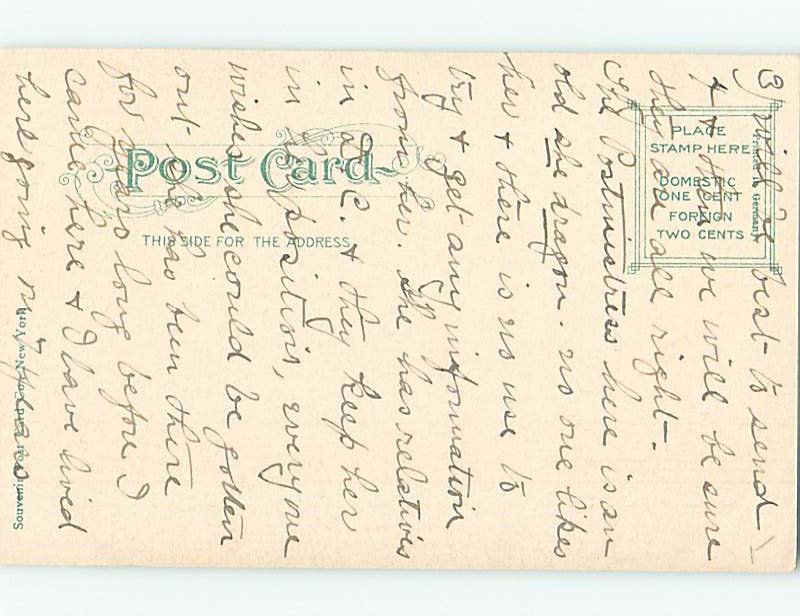 ③ will be best to send
+ then we will be sure
they are all right.
The Postmistress here is an
old she dragon. no one likes
her + there is no use to
try + get any information
from her. She has relatives
in D.C. + they keep her
in position, everyone
wishes she could be gotten
out she has been there
for years long before I
came here + I have lived
here going on years
POST CARD
THIS SIDE FOR THE ADDRESS
PLACE
STAMP HERE
DOMESTIC
ONE CENT
FOREIGN
TWO CENTS
Printed in Germany
Souvenir Post Card Co., New York